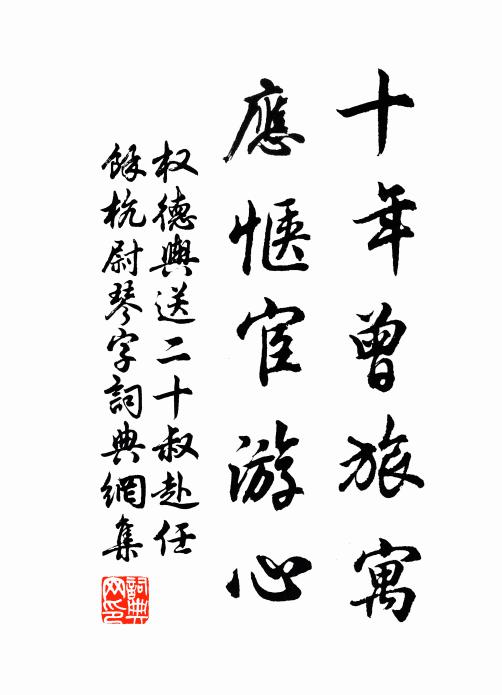 十年曾旅寓
應惬宦游心
权德輿送二十叔赴任
餘杭尉琴字詞典網集
詞典网印